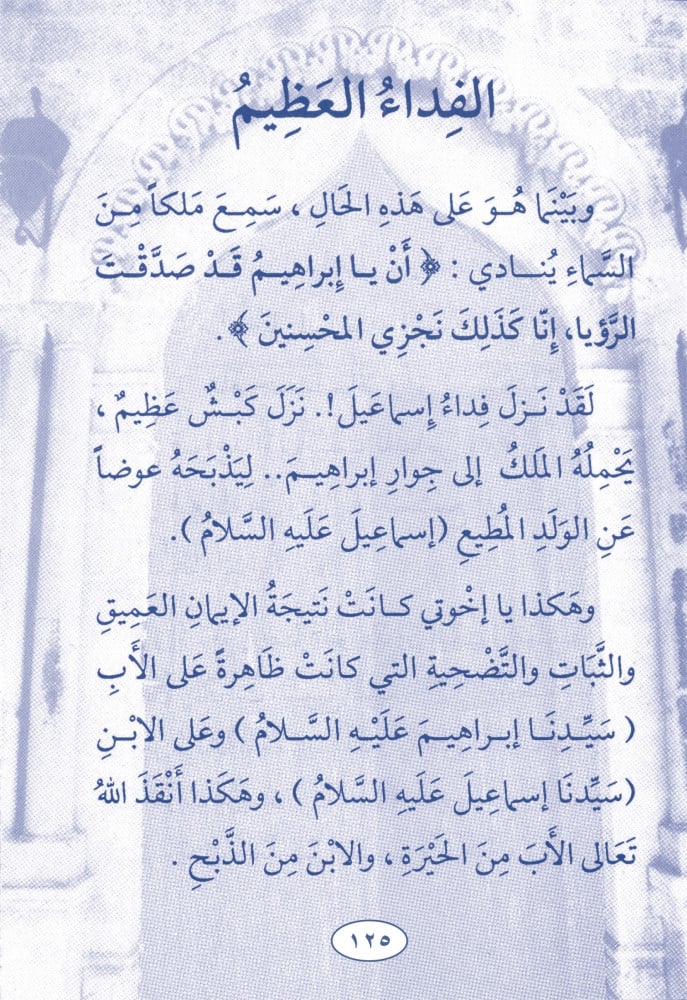 الفِداءُ العَظِيمُ
وبَيْنَما هُوَ عَلى هَذِهِ الحَالِ ، سَمِعَ مَلكاً مِنَ
السَّماءِ يُنادي : ﴿ أَنْ يا إِبراهِيمُ قَدْ صَدَّقْتَ
الرَّؤيا، إِنّا كَذَلِكَ نَجْزِي المحْسِنينَ ﴾ .
لَقَدْ نَزلَ فِداءُ إِسماعَيلَ !. نَزَلَ كَبْشٌ عَظِيمٌ ،
يَحْمِلُهُ المَلَكُ إلى جِوارِ إبراهِيمَ.. لِيَذْبَحَهُ عوضاً
عَنِ الوَلَدِ المُطِيعِ (إسماعِيلَ عَلَيهِ السَّلامُ ).
وهَكذا يا إخْوتي كانَتْ نَتيجَةُ الإيمانِ العَمِيقِ
والثَّبَاتِ والتَّضْحِيةِ التي كانَتْ ظَاهِرةً عَلى الأَبِ
( سَيِّدِنَا إبراهِيمَ عَلَيْهِ السَّلامُ ) وعَلى الابْنِ
(سَيِّدنَا إسماعِيلَ عَلَيهِ السَّلامُ ) ، وهَكَذا أَنْقَذَ اللهُ
تَعَالى الأَبَ مِنَ الحَيْرَةِ ، والابْنَ مِنَ الذَّبْحِ .
١٢٥